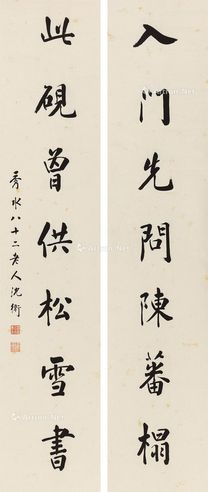 入門先問陳蕃榻
此硯曾供松雪書
秀水八十二老人沈衛